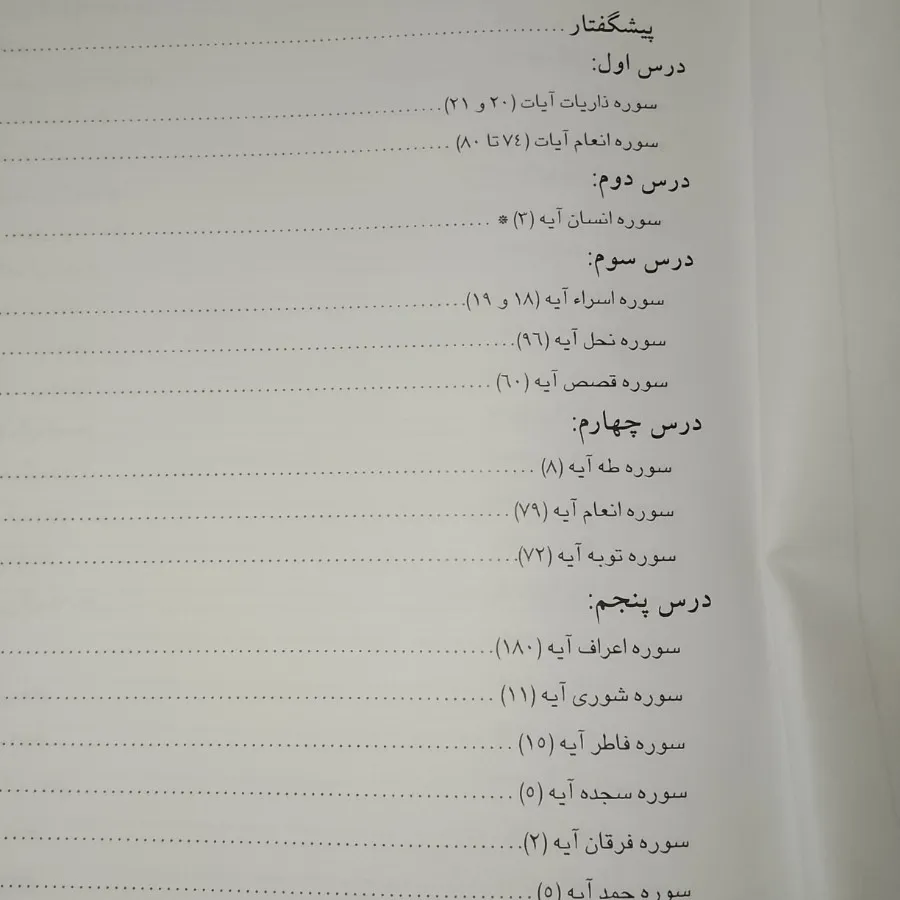 پیشگفتار
درس اول:
سوره ذاریات آیات (۲۰ و ۲۱)
سوره انعام آیات (۷٤ تا ۸۰)
درس دوم:
سوره انسان آیه (۳) *
درس سوم:
سوره اسراء آیه (۱۸ و ۱۹)
سوره نحل آیه (۹٦)
سوره قصص آیه (٦۰)
درس چهارم:
سوره طه آیه (۸)
سوره انعام آیه (۷۹)
سوره توبه آیه (۷۲)
درس پنجم:
سوره اعراف آیه (۱۸۰)
سوره شوری آیه (۱۱)
سوره فاطر آیه (۱٥)
سوره سجده آیه (٥)
سوره فرقان آیه (۲)
سوره حمد آیه (٥)